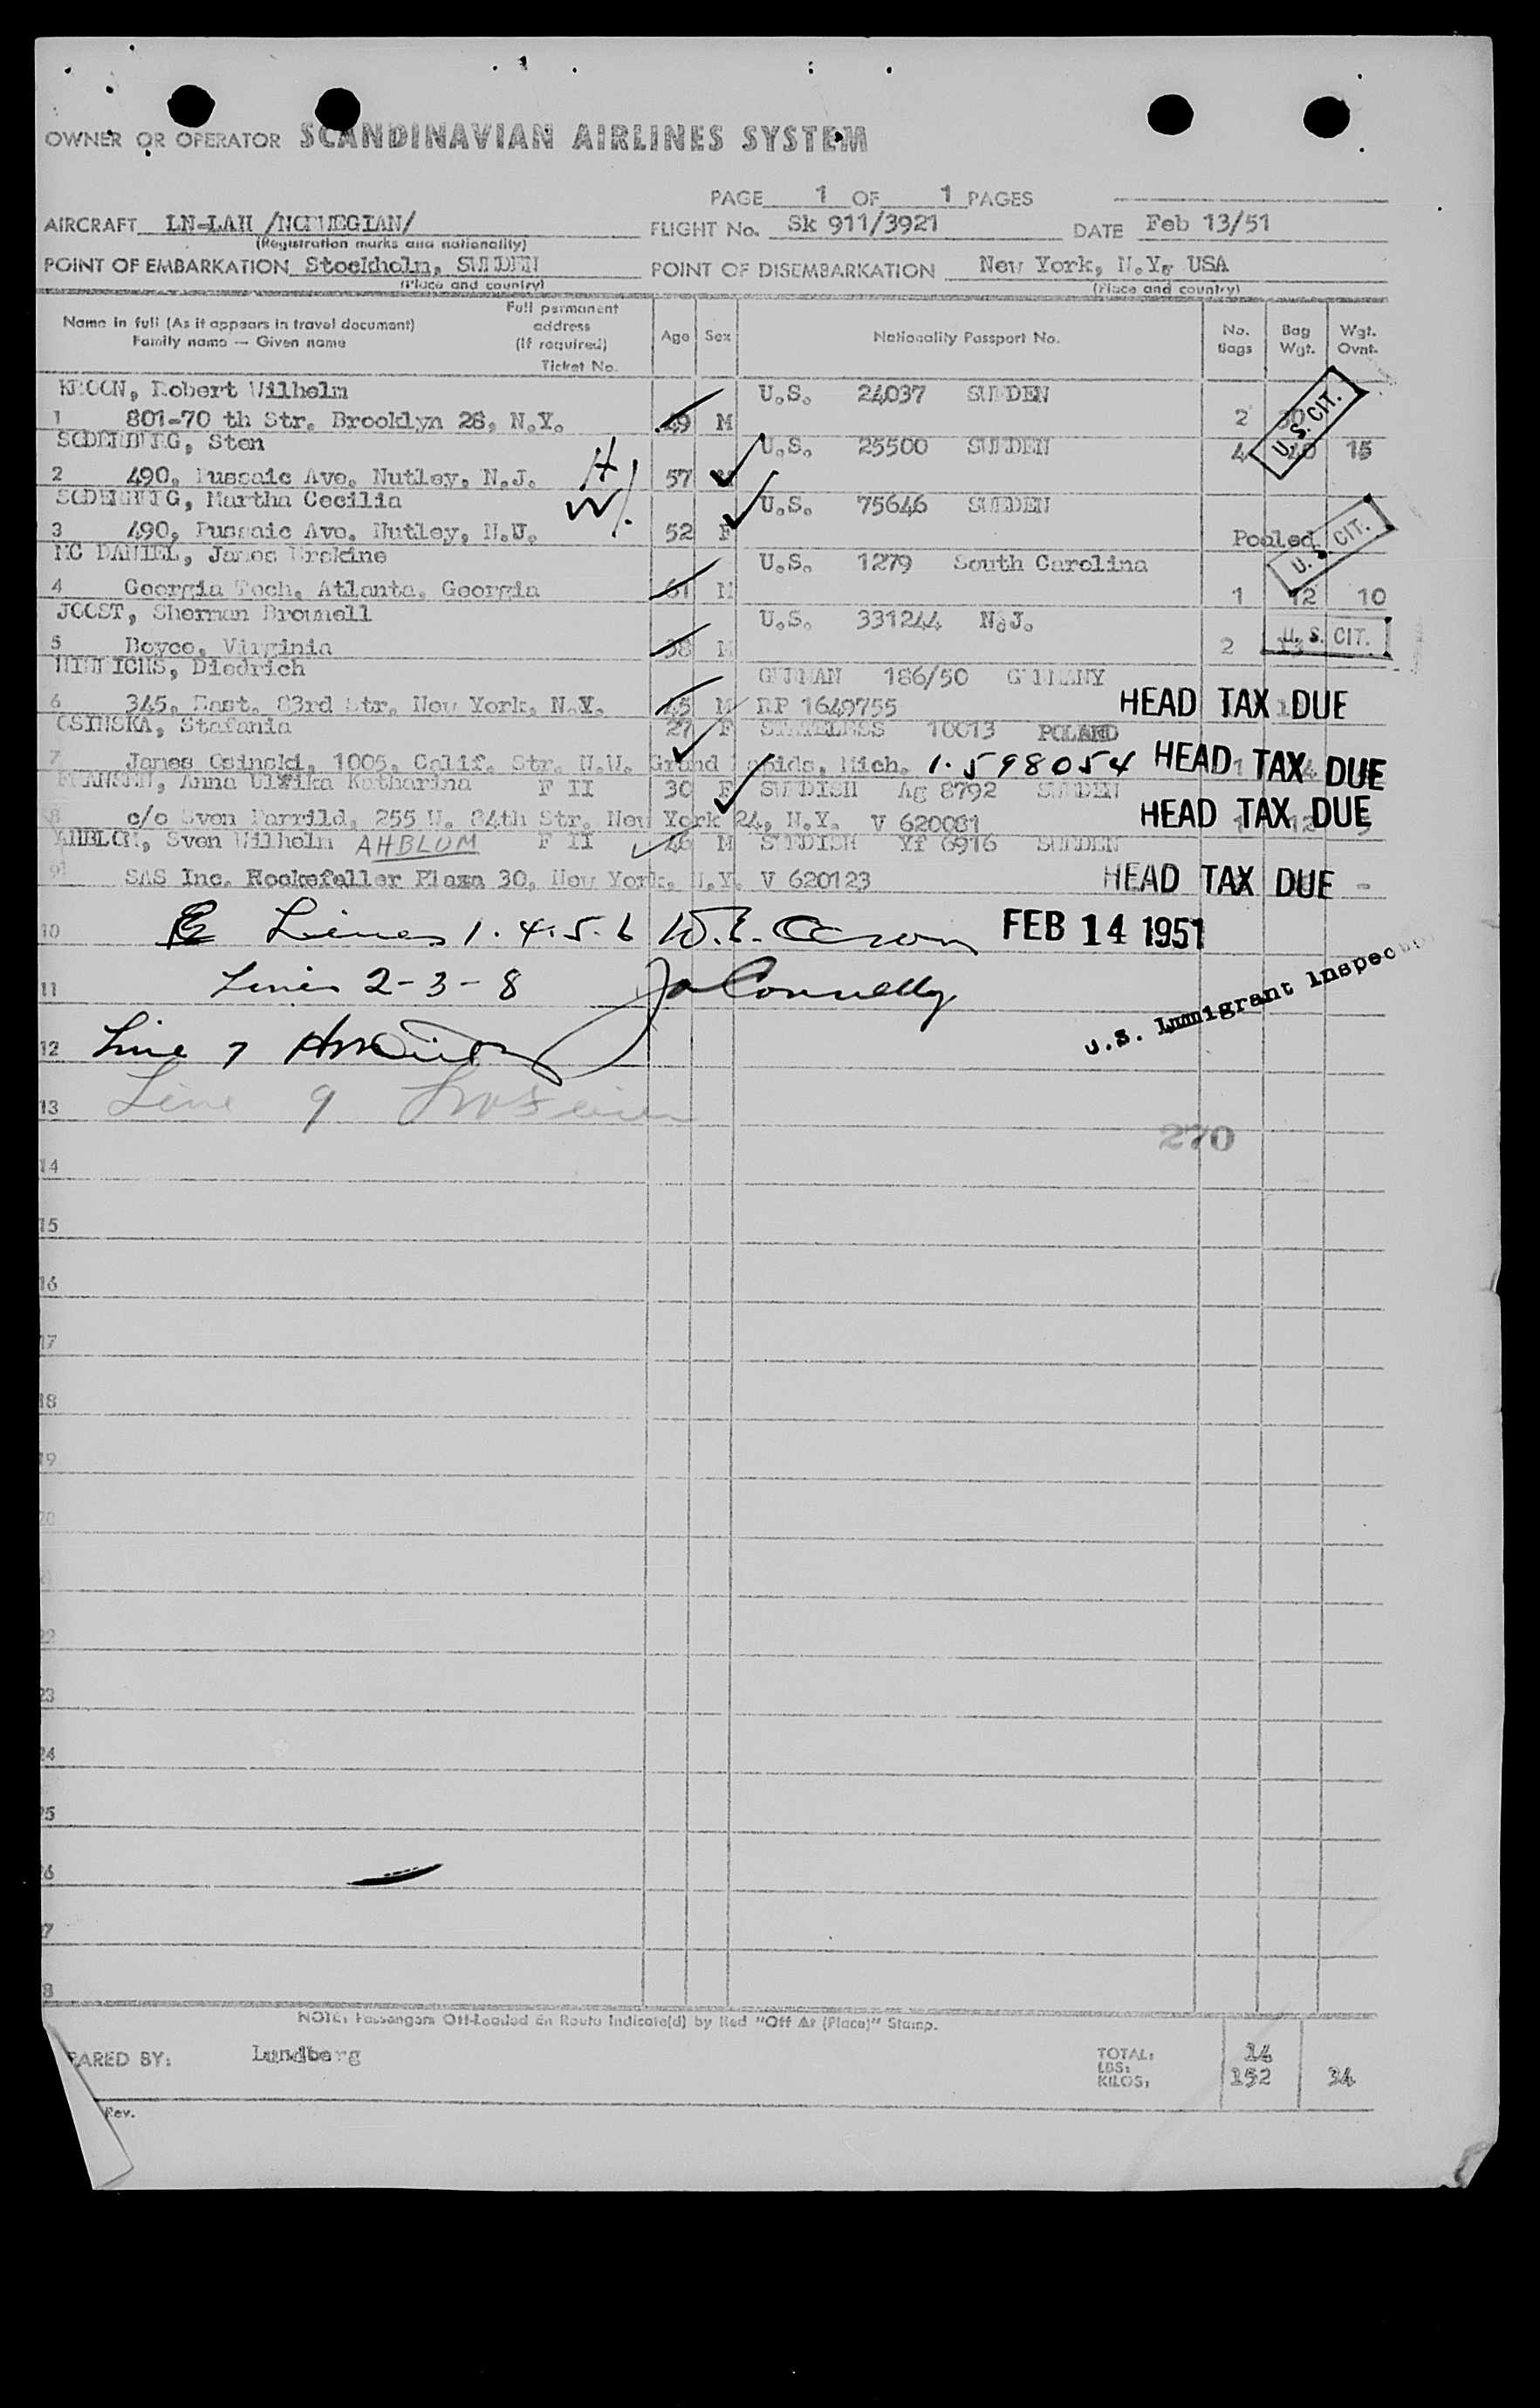 OWNER OR OPERATOR SCANDINAVIAN AIRLINES SYSTEM
PAGE 1 OF 1 PAGES
AIRCRAFT LN-LAH /NORWEGIAN/ FLIGHT No. Sk 911/3921 DATE Feb 13/51
(Registration marks and nationality)
POINT OF EMBARKATION Stockholm, SWEDEN POINT OF DISEMBARKATION New York, N.Y. USA
(Place and country) (Place and country)
Name in full (As it appears in travel document) Family name — Given name Full permanent address (If required) Ticket No. Age Sex Nationality Passport No. No. Bags Bag Wgt. Wgt. Ovnt.
KROON, Robert Wilhelm U.S. 24037 SWEDEN
1 801-70 th Str. Brooklyn 28, N.Y. 49 M 2 U.S. CIT.
SODERBERG, Sten U.S. 25500 SWEDEN 4 40 15
2 490, Passaic Ave. Nutley, N.J. H 57
SODERBERG, Martha Cecilia W U.S. 75646 SWEDEN
3 490, Passaic Ave. Nutley, N.J. 52 F Pooled U.S. CIT.
MC DANIEL, James Erskine U.S. 1279 South Carolina
4 Georgia Tech, Atlanta, Georgia 61 M 1 12 10
JOOST, Sherman Brownell U.S. 331244 N.J.
5 Boyce, Virginia 38 M 2 U. S. CIT.
HINRICHS, Diedrich GERMAN 186/50 GERMANY
6 345, East. 83rd Str. New York, N.Y. 45 M RP 1649755 HEAD TAX DUE
OSINSKA, Stefania 27 F STATELESS 10013 POLAND
7 James Osinski, 1005, Calif. Str. N.W. Grand Rapids, Mich. 1.598054 HEAD TAX DUE
Anna Ulrika Katharina F II 30 F SWEDISH Ag 8792 SWEDEN
8 c/o Sven Parrild, 255 W. 84th Str. New York 24, N.Y. V 620081 HEAD TAX DUE
AHBLOM, Sven Wilhelm AHBLUM F II 46 M SWEDISH Yf 6916 SWEDEN
9 SAS Inc. Rockefeller Plaza 30, New York, N.Y. V 620123 HEAD TAX DUE -
10 Lines 1. 4. 5. 6 W.E. FEB 14 1951
11 Lines 2-3-8 Connelly
U.S. Immigrant Inspector
12 Line 7
13 Line 9
270
14
15
16
17
18
19
20
22
23
24
25
26
27
28
NOTE: Passengers Off-Loaded En Route Indicate(d) by Red "Off At (Place)" Stamp.
PREPARED BY: Lundberg TOTAL: 14
LBS:
KILOS: 152 34
Rev.